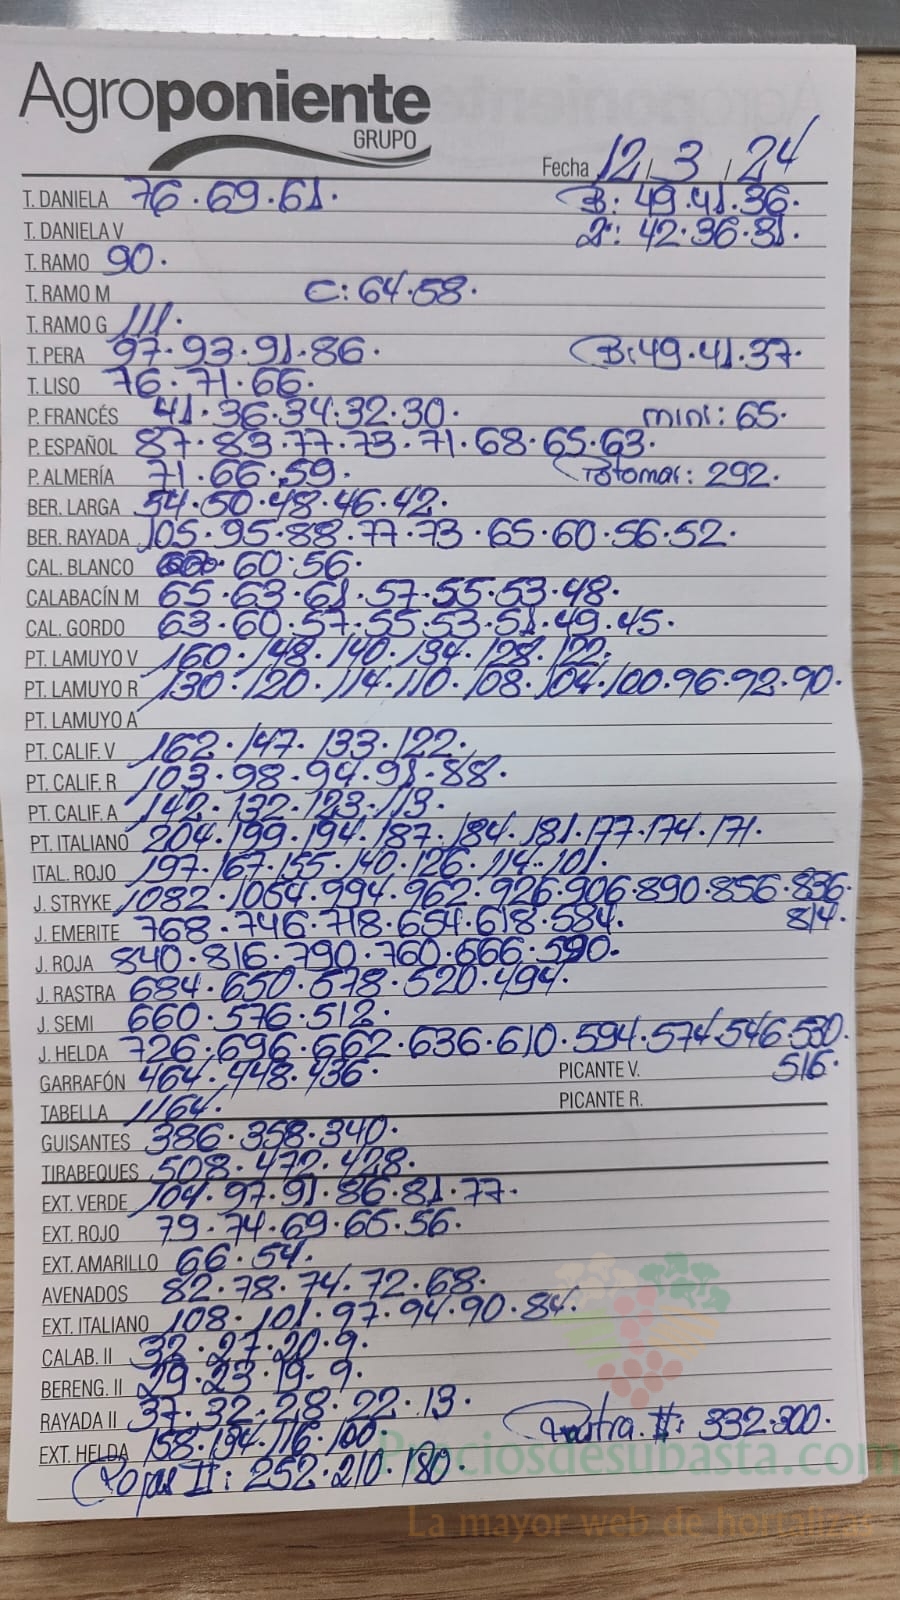 Agroponiente
GRUPO
Fecha 12 / 3 / 24
T. DANIELA 76·69·61· B: 49·41·36·
T. DANIELA V 2ª: 42·36·31·
T. RAMO 90·
T. RAMO M C: 64·58·
T. RAMO G 111·
T. PERA 97·93·91·86· B: 49·41·37·
T. LISO 76·71·66·
P. FRANCÉS 41·36·34·32·30· mini: 65·
P. ESPAÑOL 87·83·77·73·71·68·65·63·
P. ALMERÍA 71·66·59· Totomac: 292·
BER. LARGA 54·50·48·46·42·
BER. RAYADA 105·95·88·77·73·65·60·56·52·
CAL. BLANCO 60·56·
CALABACÍN M 65·63·61·57·55·53·48·
CAL. GORDO 63·60·57·55·53·51·49·45·
PT. LAMUYO V 160·148·140·134·128·122·
PT. LAMUYO R 130·120·114·110·108·104·100·96·92·90·
PT. LAMUYO A
PT. CALIF. V 162·147·133·122·
PT. CALIF. R 103·98·94·91·88·
PT. CALIF. A 142·132·123·113·
PT. ITALIANO 204·199·194·187·184·181·177·174·171·
ITAL. ROJO 197·167·155·140·126·114·101·
J. STRYKE 1082·1054·994·962·926·906·890·856·836·
J. EMERITE 768·746·718·654·618·584· 814·
J. ROJA 840·816·790·760·666·590·
J. RASTRA 684·650·578·520·494·
J. SEMI 660·576·512·
J. HELDA 726·696·662·636·610·594·574·546·530·
GARRAFÓN 464·448·436· PICANTE V. 516·
TABELLA 1164· PICANTE R.
GUISANTES 386·358·340·
TIRABEQUES 508·472·428·
EXT. VERDE 104·97·91·86·81·77·
EXT. ROJO 79·74·69·65·56·
EXT. AMARILLO 66·54·
AVENADOS 82·78·74·72·68·
EXT. ITALIANO 108·101·97·94·90·84·
CALAB. II 32·27·20·9·
BERENG. II 29·23·19·9·
RAYADA II 37·32·28·22·13·
EXT. HELDA 158·134·116·100· Rastra. II: 332·300·
Rojas II: 252·210·180·
Preciosdesubasta.com
La mayor web de hortalizas